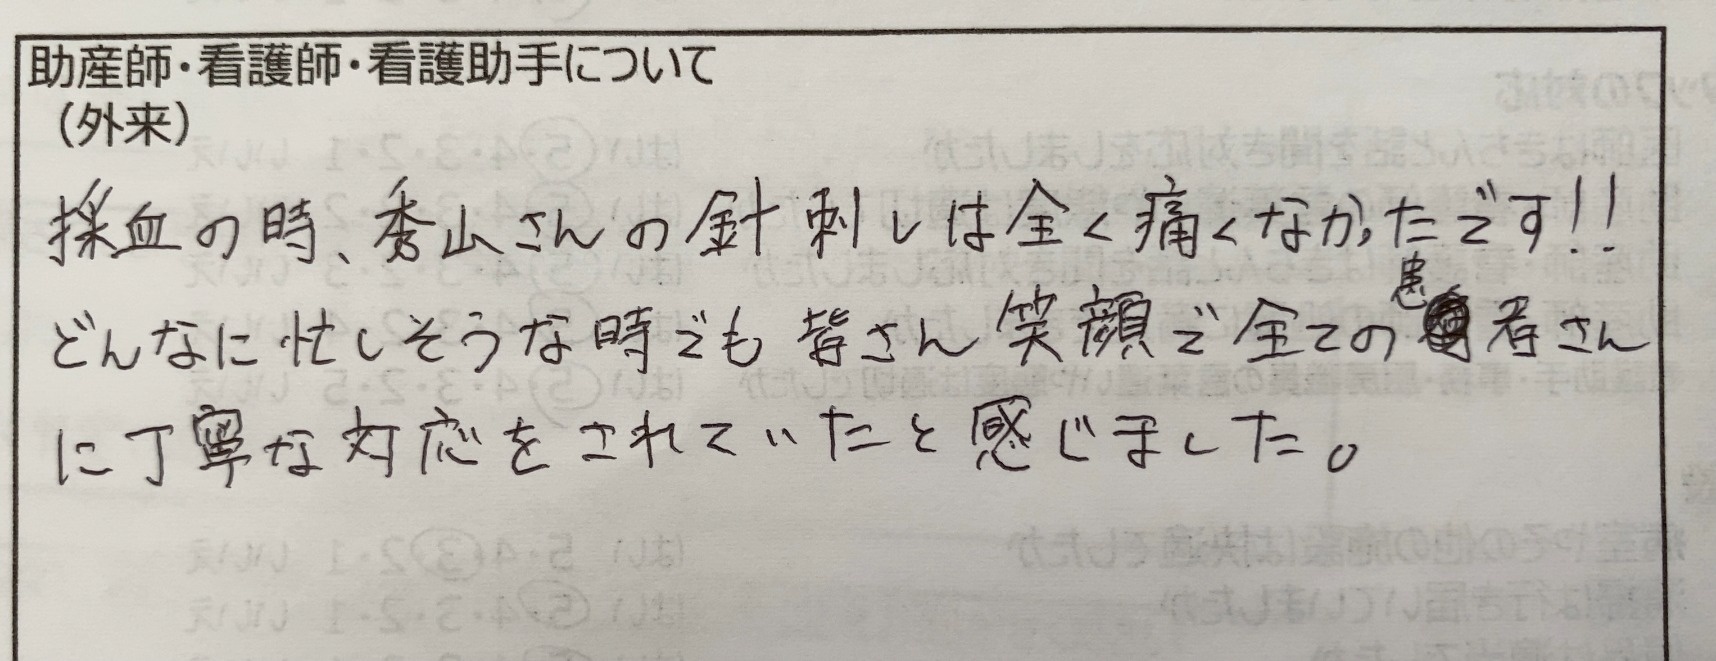 助産師・看護師・看護助手について
（外来）
採血の時、秀山さんの針刺しは全く痛くなかったです!!
どんなに忙しそうな時でも皆さん笑顔で全ての患者さん
に丁寧な対応をされていたと感じました。